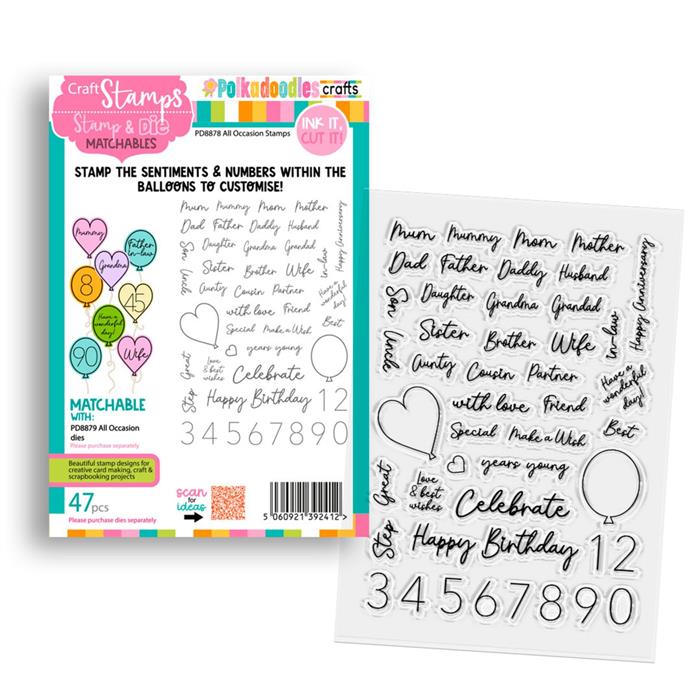 Craft Stamps
Stamp & Die
MATCHABLES
Polkadoodles crafts
PD8878 All Occasion Stamps
INK IT,
CUT IT!
STAMP THE SENTIMENTS & NUMBERS WITHIN THE
BALLOONS TO CUSTOMISE!
Mummy
Father
in-law
Grandma
8
45
Have a
wonderful
day!
90
Wife
MATCHABLE
WITH:
PD8879 All Occasion
dies
Please purchase separately
Beautiful stamp designs for
creative card making, craft &
scrapbooking projects
47 pcs
Please purchase dies separately
scan
for
ideas
5 060921 392412 >
Mum Mummy Mom Mother
Dad Father Daddy Husband
Son Daughter Grandma Grandad
Uncle Sister Brother Wife in-law
Happy Anniversary
Aunty Cousin Partner
Have a
wonderful
day!
with love Friend
Special Make a Wish Best
years young
Love
& best
wishes
Celebrate
Step Great
Happy Birthday 12
34567890
Mum Mummy Mom Mother
Dad Father Daddy Husband
Son Daughter Grandma Grandad
Uncle Sister Brother Wife in-law
Happy Anniversary
Aunty Cousin Partner
Have a
wonderful
day!
with love Friend
Special Make a Wish Best
years young
Love
& best
wishes
Celebrate
Step Great
Happy Birthday 12
34567890